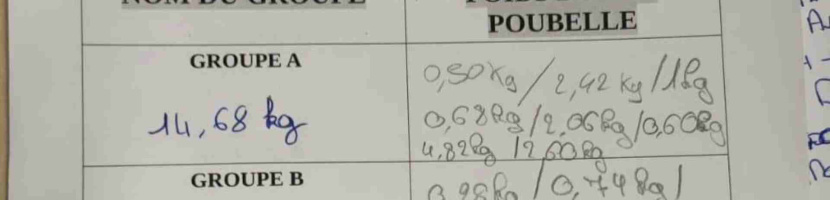 NOM DU GROUPE
POUBELLE
GROUPE A
0,50Kg / 2,42 Kg / 1kg
14,68 kg
0,68kg / 2,06kg / 0,60kg
4,82kg / 2,60kg
GROUPE B
0,98kg / 0,74kg /